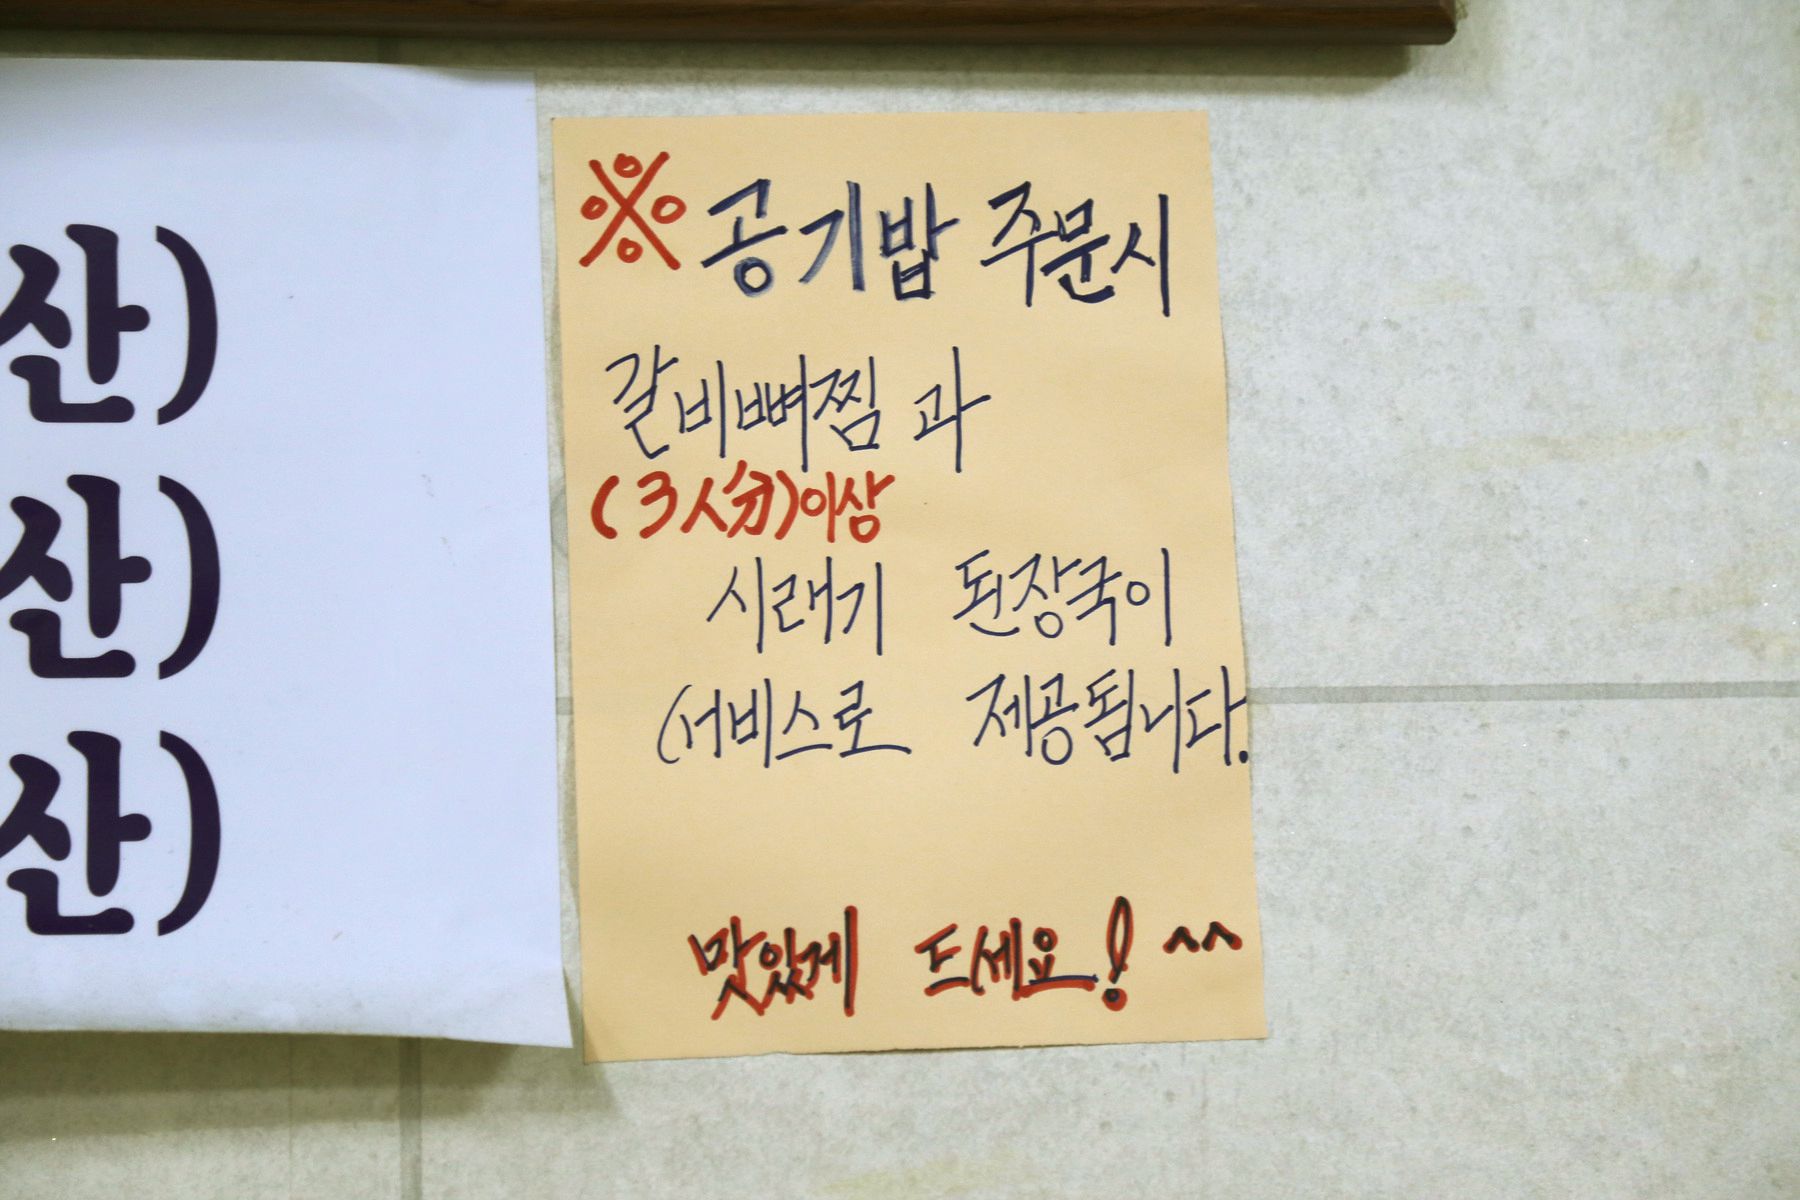 산)
산)
산)
※ 공기밥 주문시
갈비뼈찜 과
(3人分)이상
시래기 된장국이
(서비스로 제공됩니다.
맛있게 드세요! ^^